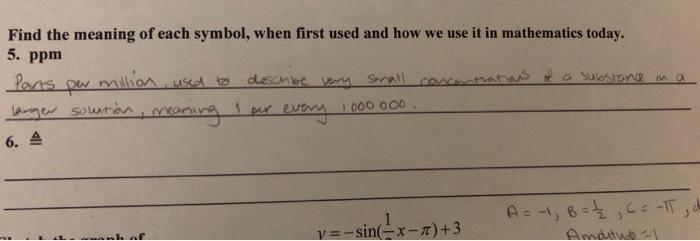 Find the meaning of each symbol, when first used and how we use it in mathematics today.
5. ppm
Parts per million, used to describe very small concentrations of a substance in a
larger solution, meaning 1 per every 1 000 000.
6. ≜
A = -1, B = 1/2, C = -π, d
y = -sin(1/2 x - π) + 3
Amplitude = 1
graph of